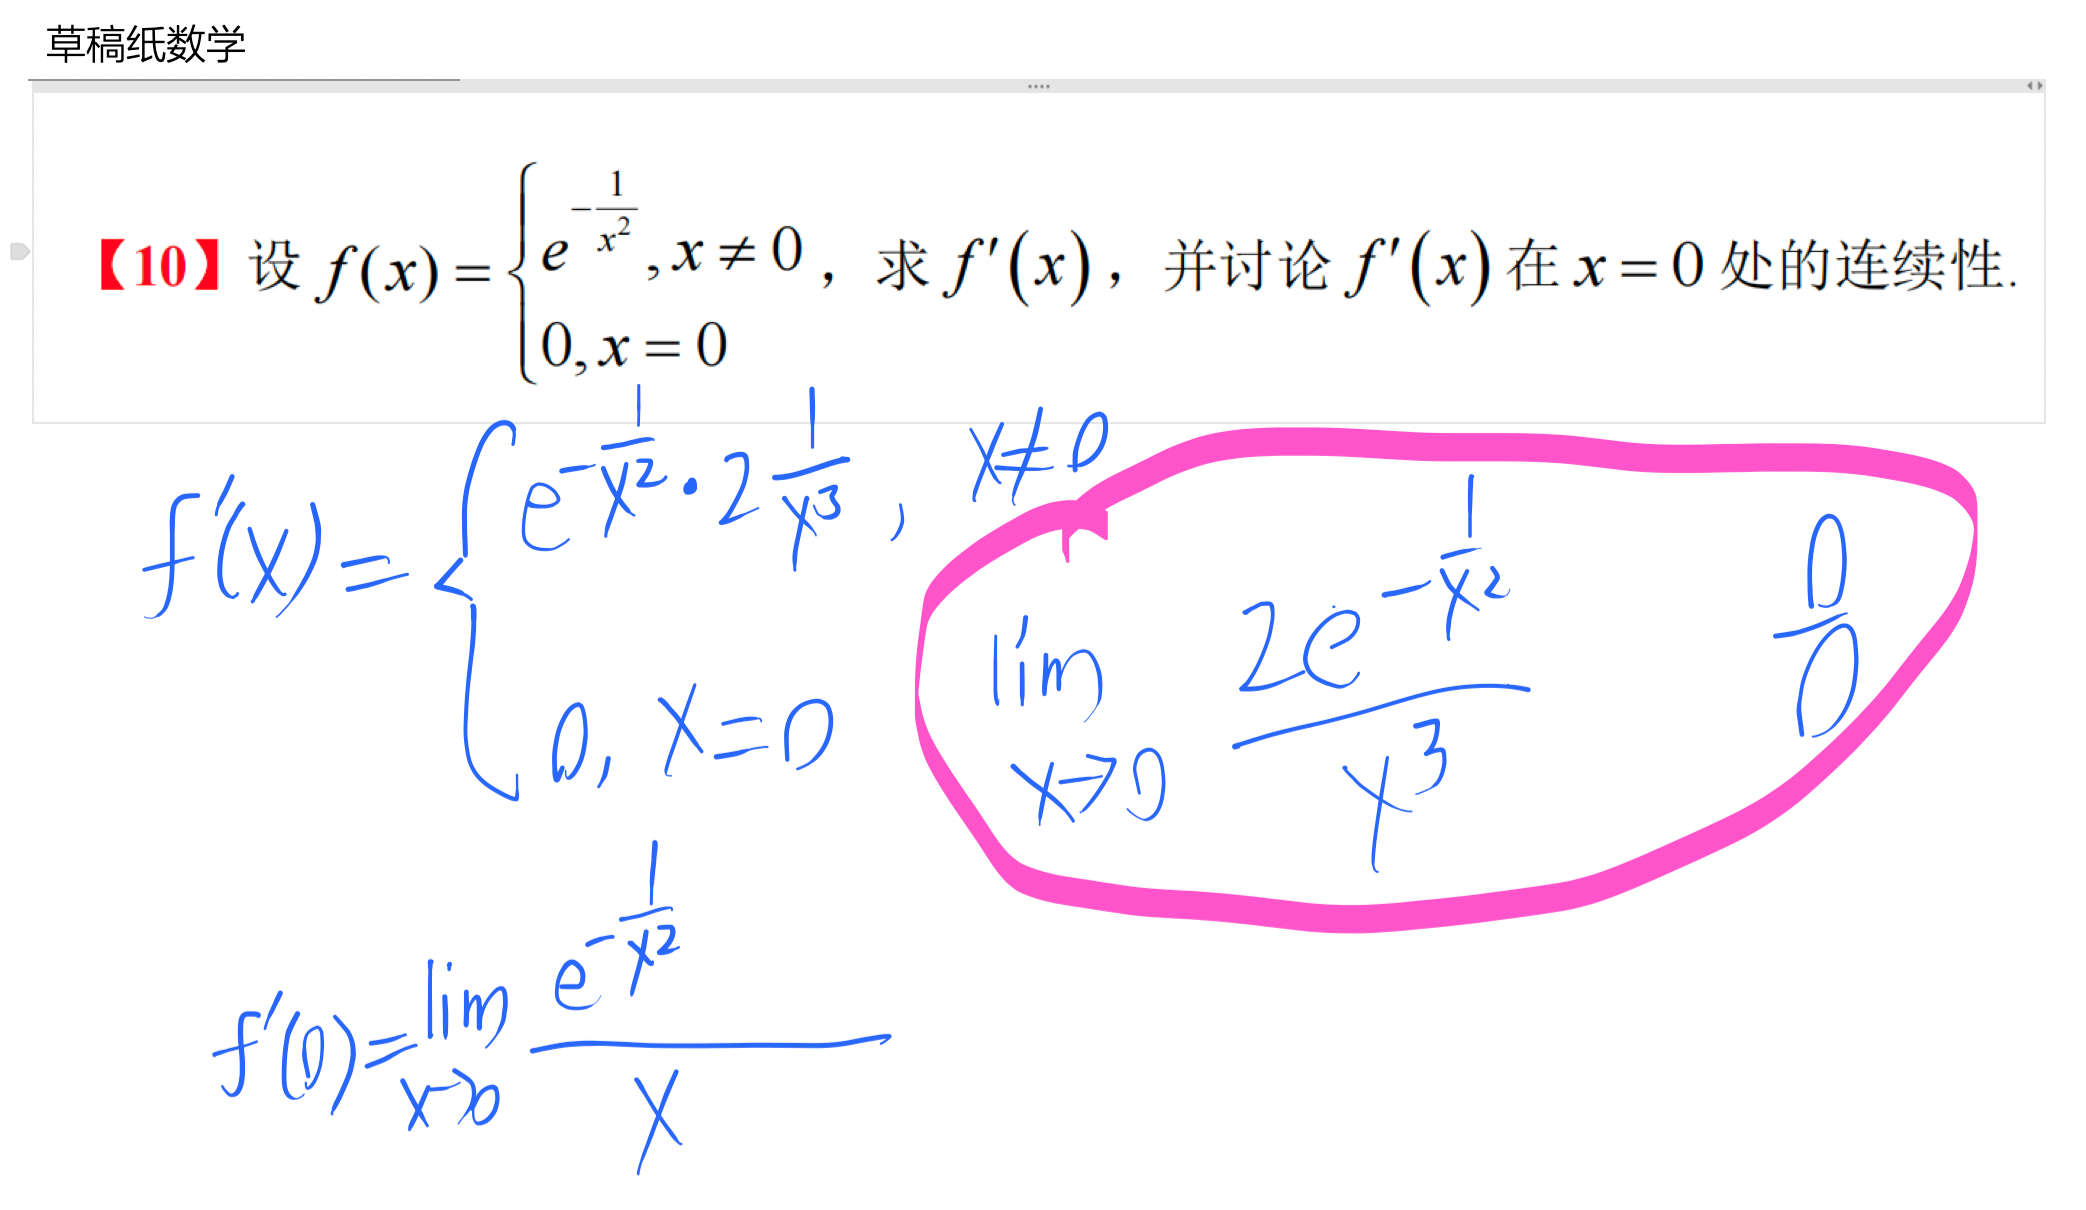 草稿纸数学
【10】设 f(x) = { e^{-\frac{1}{x^2}}, x ≠ 0 ; 0, x = 0 ，求 f′(x)，并讨论 f′(x) 在 x = 0 处的连续性.
f′(x) = { e^{-\frac{1}{x^2}} · 2\frac{1}{x^3}, x ≠ 0 ; 0, x = 0
\lim_{x→0} \frac{2e^{-\frac{1}{x^2}}}{x^3} \frac{0}{0}
f′(0) = \lim_{x→0} \frac{e^{-\frac{1}{x^2}}}{x}